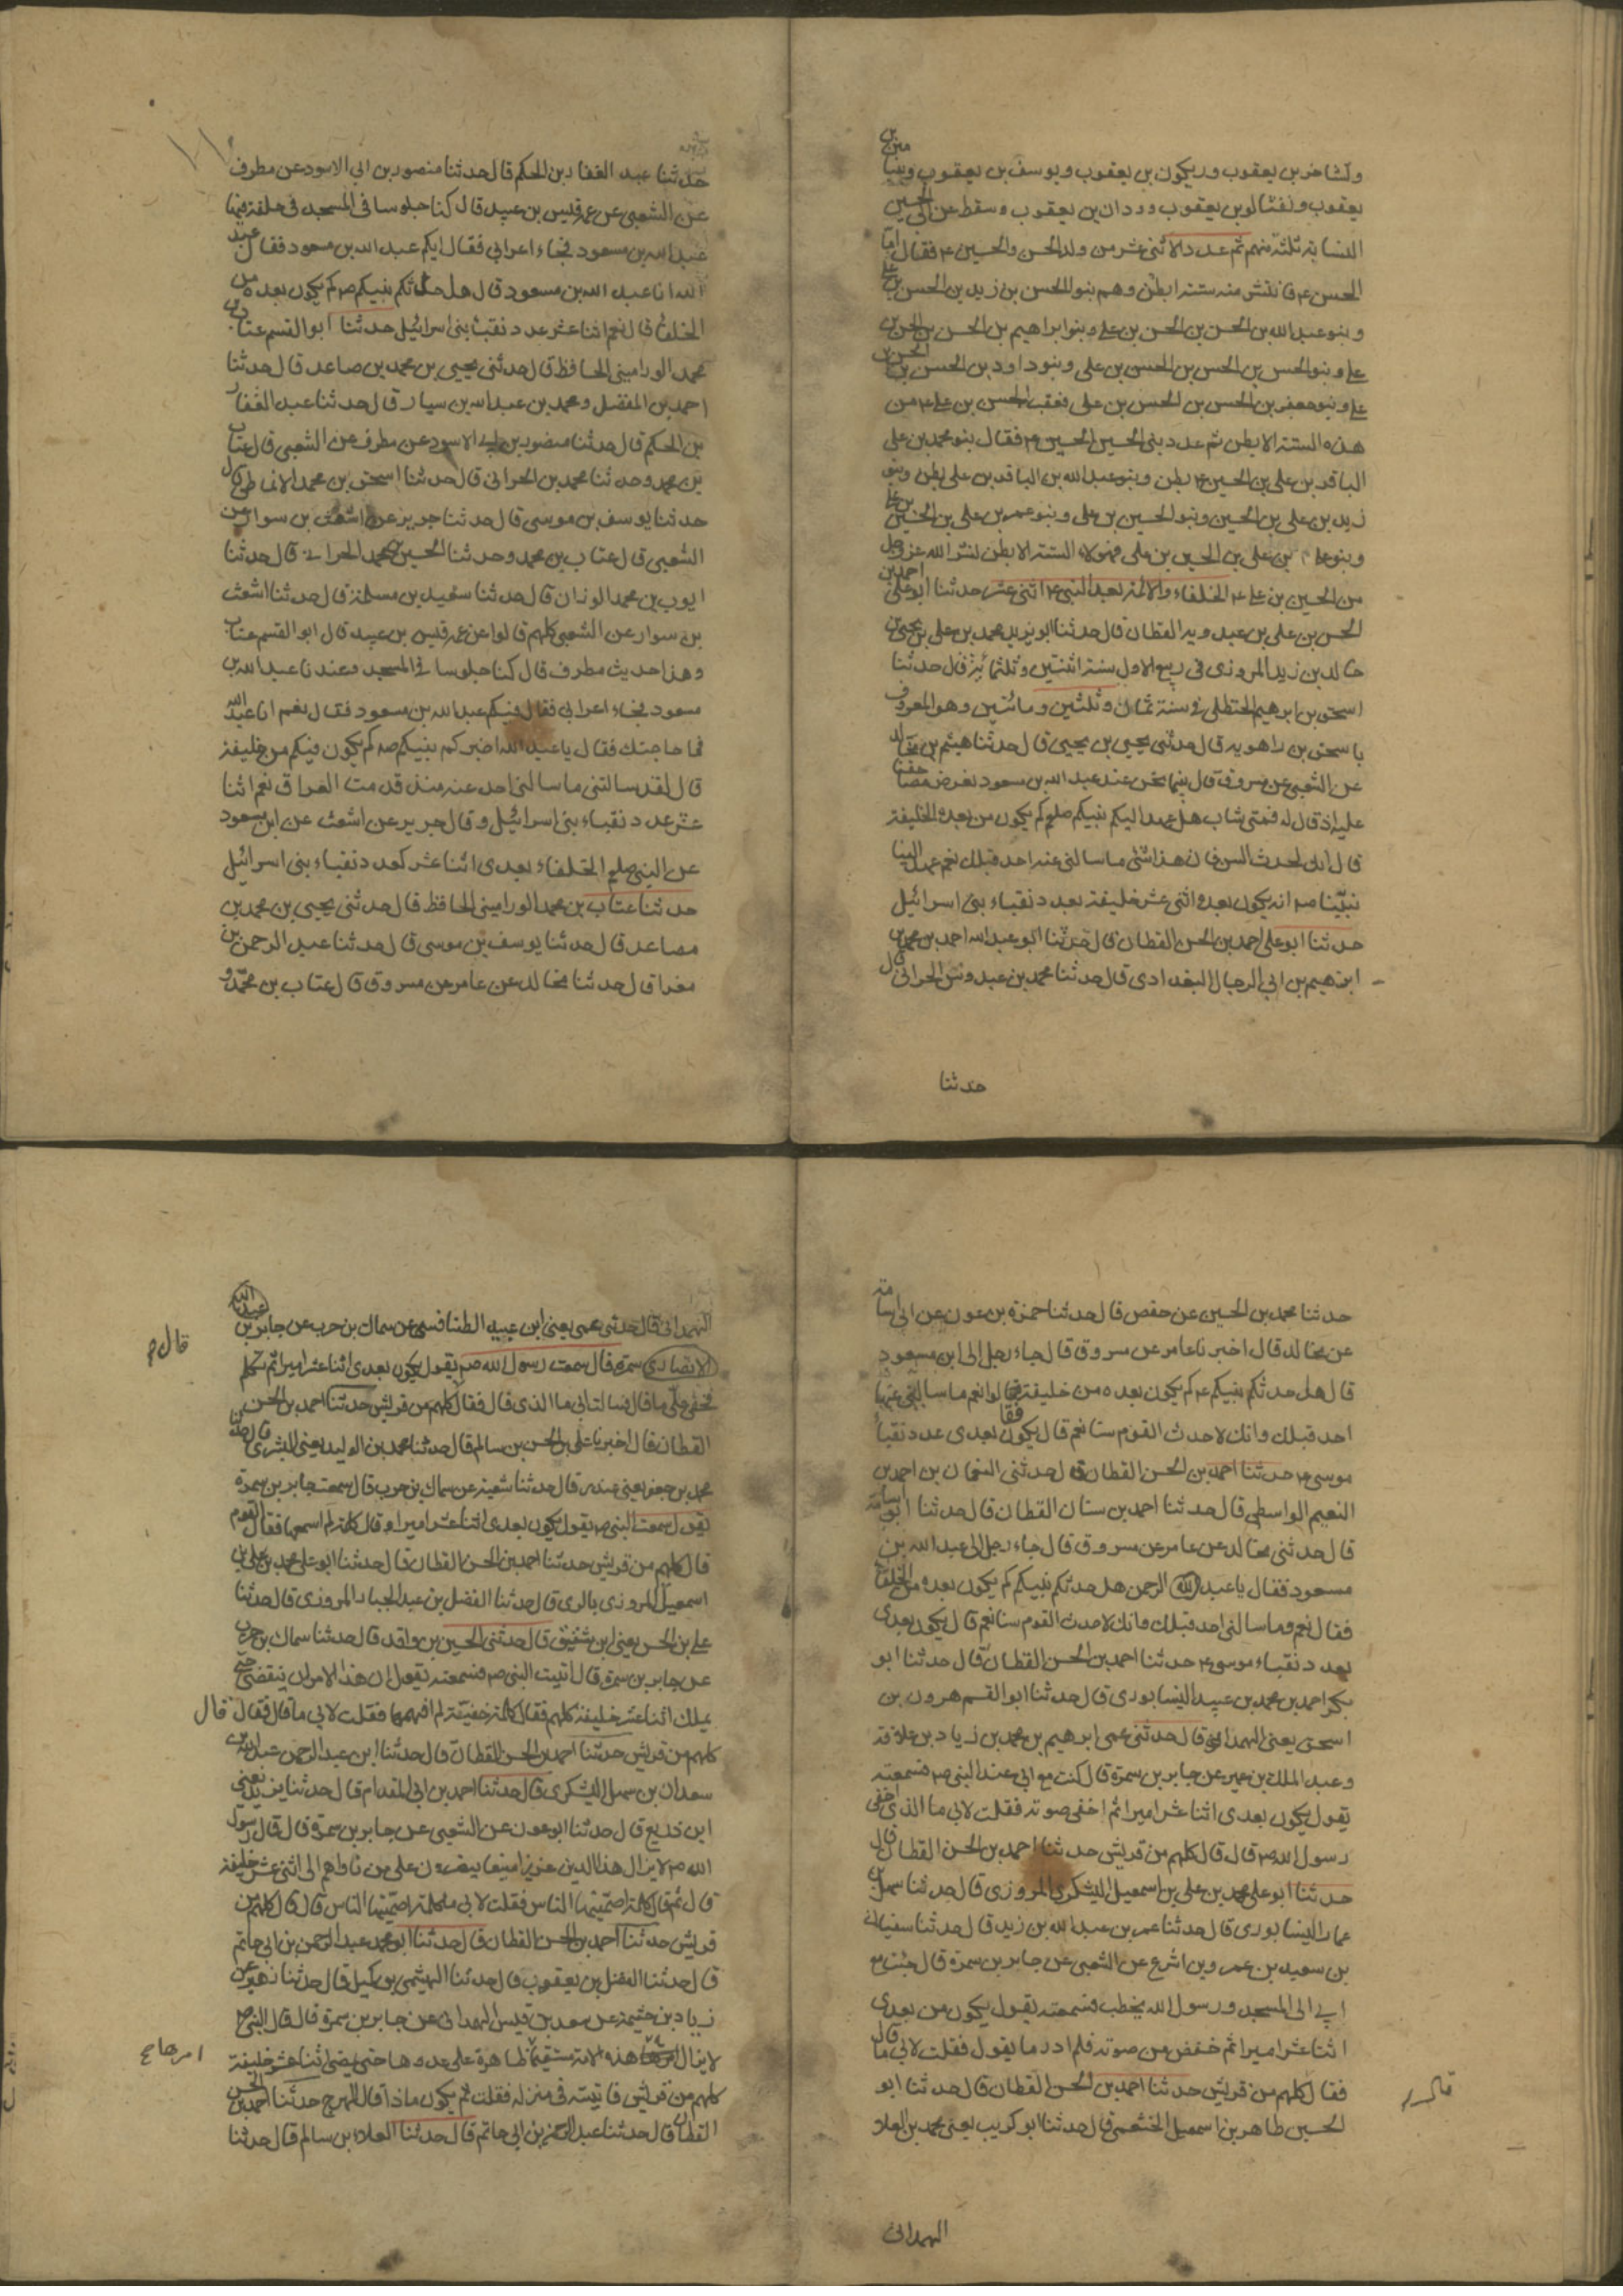 ويشاخر بن يعقوب وريكون بن يعقوب ويوسف بن يعقوب وبنيا
مين بن
يعقوب ونفثالوبن يعقوب وردان بن يعقوب وسقط عن ابي الحسين
النسابة ثلثة منهم ثم عدد الاثنى عشر من ولد الحسن والحسين ع فقال اما
الحسن ع فانتشر منه ستة ابطن وهم بنو الحسن بن زيد بن الحسن بن علي
وبنو عبد الله بن الحسن بن الحسن بن علي وبنو ابراهيم بن الحسن بن الحسن بن
علي وبنو الحسن بن الحسن بن الحسن بن علي وبنو داود بن الحسن بن الحسن بن
علي وبنو جعفر بن الحسن بن الحسن بن علي فعقب الحسن بن علي ع من
هذه الستة الابطن ثم عدد بني الحسين ع فقال بنو محمد بن علي
الباقر بن علي بن الحسين ع بطن وبنو عبد الله بن الباقر بن علي بطن وبنو
زيد بن علي بن الحسين وبنو الحسين بن علي وبنو عمر بن علي بن الحسين بن علي
وبنو علي بن علي بن الحسين بن علي فهولاء الستة الابطن نشر الله عز وجل
من الحسين بن علي ع الخلفاء والائمة بعد النبي ع اثنى عشر حدثنا ابو علي احمد بن
الحسن بن علي بن عبدويه القطان قال حدثنا ابو يزيد محمد بن علي بن يحيى بن
خالد بن زيد المروزى فى ربيع الاول سنة اثنتين وثلثمائة قال حدثنا
اسحق بن ابرهيم الحنظلي في سنة ثمان وثلثين ومائتين وهو المعروف
باسحق بن راهويه قال حدثني يحيى بن يحيى قال حدثنا هيثم بن خالد
عن الشعبي عن مسروق قال بينما نحن عند عبد الله بن مسعود نعرض مصاحفنا
عليه اذ قال له فتى شاب هل عهد اليكم نبيكم صلعم كم يكون من بعده خليفة
قال انك لحدث السن فان هذا شئ ما سالني عنه احد قبلك نعم عهد الينا
نبيّنا ص انه يكون بعده اثنى عشر خليفة بعدد نقباء بنى اسرائيل
حدثنا ابو علي احمد بن الحسن القطان قال حدثنا ابو عبد الله احمد بن محمد بن
ابرهيم بن ابي الرجال البغدادى قال حدثنا محمد بن عبدوس الحرانى قال
حدثنا
حدثنا عبد الغفار بن الحكم قال حدثنا منصور بن ابي الاسود عن مطرف
عن الشعبي عن عمه قيس بن عبيد قال كنا جلوسا فى المسجد فى حلقة فيها
عبد الله بن مسعود فجاء اعرابي فقال ايكم عبد الله بن مسعود فقال عبد
الله انا عبد الله بن مسعود قال هل حدثكم نبيكم ص كم يكون بعده من
الخلفا قال نعم اثنا عشر عدد نقباء بنى اسرائيل حدثنا ابو القسم عتاب بن
محمد الورامينى الحافظ قال حدثنى يحيى بن محمد بن صاعد قال حدثنا
احمد بن المفضل ومحمد بن عبد الله بن سيار قال حدثنا عبد الغفار
بن الحكم قال حدثنا منصور بن ابي الاسود عن مطرف عن الشعبي قال عتاب
بن محمد وحدثنا محمد بن الحرانى قال حدثنا اسحق بن محمد الانماطى قال
حدثنا يوسف بن موسى قال حدثنا جرير عن اشعث بن سوار عن
الشعبي قال عتاب بن محمد وحدثنا الحسين بن محمد الحرانى قال حدثنا
ايوب بن محمد الوزان قال حدثنا سعيد بن مسلمة قال حدثنا اشعث
بن سوار عن الشعبي كلهم قالوا عن عمه قيس بن عبيد قال ابو القسم عتاب
وهذا حديث مطرف قال كنا جلوسا فى المسجد ومعنا عبد الله بن
مسعود فجاء اعرابي فقال فيكم عبد الله بن مسعود فقال نعم انا عبد الله
فما حاجتك فقال يا عبد الله اخبركم نبيكم ص كم يكون فيكم من خليفة
قال لقد سالتنى ما سالنى احد عنه منذ قدمت العراق نعم اثنا
عشر عدد نقباء بنى اسرائيل وقال جرير عن اشعث عن ابن مسعود
عن النبي صلعم الخلفاء بعدى اثنا عشر كعدد نقباء بنى اسرائيل
حدثنا عتاب بن محمد الورامينى الحافظ قال حدثنى يحيى بن محمد بن
صاعد قال حدثنا يوسف بن موسى قال حدثنا عبد الرحمن بن
مغرا قال حدثنا مخالد عن عامر عن مسروق قال عتاب بن محمد و
حدثنا محمد بن الحسين عن حفص قال حدثنا حمزة بن عون عن ابي اسامة
عن مخالد قال اخبرنا عامر عن مسروق قال جاء رجل الى ابن مسعود
قال هل حدثكم نبيكم ع كم يكون بعده من خليفة قالوا نعم ما سالنى عنها
احد قبلك وانك لاحدث القوم سنا نعم قال يكون بعدى عدد نقباء
موسى ع حدثنا احمد بن الحسن القطان قال حدثنى النعمان بن احمد بن
النعيم الواسطي قال حدثنا احمد بن سنان القطان قال حدثنا ابو اسامة
قال حدثنى مخالد عن عامر عن مسروق قال جاء رجل الى عبد الله بن
مسعود فقال يا عبد الله الرحمن هل حدثكم نبيكم كم يكون بعده من الخلفا
فقال نعم وما سالنى احد قبلك وانك لاحدث القوم سنا نعم قال يكون بعدى
بعدد نقباء موسى ع حدثنا احمد بن الحسن القطان قال حدثنا ابو
بكر احمد بن محمد بن عبيد النيسابورى قال حدثنا ابو القسم هرون بن
اسحق يعنى الهمدانى قال حدثنى عمى ابرهيم بن محمد بن زياد بن علاقة
وعبد الملك بن عمير عن جابر بن سمرة قال كنت مع ابي عند النبي ص فسمعته
يقول يكون بعدى اثنا عشر اميرا ثم اخفى صوته فقلت لابي ما الذى اخفى
رسول الله ص قال قال كلهم من قريش حدثنا احمد بن الحسن القطان قال
حدثنا ابو علي محمد بن علي بن اسمعيل اليشكرى المروزى قال حدثنا سهل بن
عمار النيسابورى قال حدثنا عمر بن عبد الله بن زيد قال حدثنا سفيان
بن سعيد بن عمرو بن اشرع عن الشعبي عن جابر بن سمرة قال جئت مع
ابي الى المسجد ورسول الله يخطب فسمعته يقول يكون من بعدى
اثنا عشر اميرا ثم خفض من صوته فلم ادر ما يقول فقلت لابي ما قال
فقال كلهم من قريش حدثنا احمد بن الحسن القطان قال حدثنا ابو
الحسين طاهر بن اسمعيل الخثعمى قال حدثنا ابو كريب يعنى محمد بن العلا
الهمدانى
الهمدانى قال حدثنى عمى يعنى ابن عبيد الطنافسى عن سماك بن حرب عن جابر بن عبد الله
الانصارى سمرة قال سمعت رسول الله ص يقول يكون بعدى اثنا عشر اميرا ثم تكلم
فخفى علي ما قال فسالت ابي ما الذى قال فقال كلهم من قريش حدثنا احمد بن الحسن
القطان قال اخبرنا علي بن الحسن بن سالم قال حدثنا محمد بن الوليد يعنى البشرى قال حدثنا
محمد بن جعفر يعنى غندر قال حدثنا شعبة عن سماك بن حرب قال سمعت جابر بن سمرة
يقول سمعت النبي ص يقول يكون بعدى اثنا عشر اميرا وقال كلمة لم اسمعها فقال القوم
قال كلهم من قريش حدثنا احمد بن الحسن القطان قال حدثنا ابو علي محمد بن علي بن
اسمعيل المروزى بالرى قال حدثنا الفضل بن عبد الجبار المروزى قال حدثنا
علي بن الحسن يعنى ابن شقيق قال حدثنى الحسين بن واقد قال حدثنا سماك بن حرب
عن جابر بن سمرة قال اتيت النبي ص فسمعته يقول ان هذا الامر لن ينقضى حتى
يملك اثنا عشر خليفة كلهم فقال كلمة خفيفة لم افهمها فقلت لابي ما قال فقال قال
كلهم من قريش حدثنا احمد بن الحسن القطان قال حدثنا ابن عبد الرحمن عبد الله بن
سعدان بن سهل اليشكرى قال حدثنا احمد بن ابي المقدام قال حدثنا يزيد يعنى
ابن ذريع قال حدثنا ابو عون عن الشعبي عن جابر بن سمرة قال قال رسول
الله ص لا يزال هذا الدين عزيزا منيعا ينصرون على من ناواهم الى اثنى عشر خليفة
قال ثم قال كلمة اصمتنيها الناس فقلت لابي ما كلمة اصمتنيها الناس قال قال كلهم من
قريش حدثنا احمد بن الحسن القطان قال حدثنا ابو محمد عبد الرحمن بن ابي حاتم
قال حدثنا الفضل بن يعقوب قال حدثنا الهيثمى بن كميل قال حدثنا زهير عن
زياد بن خثيمة عن سعد بن قيس الهمدانى عن جابر بن سمرة قال قال النبي ص
لا يزال هذه الامة مستقيما ظاهرة على عدوها حتى يمضى اثنا عشر خليفة
كلهم من قريش فاتيته فى منزله فقلت ثم يكون ماذا قال الهرج حدثنا احمد بن الحسن
القطان قال حدثنا عبد الرحمن بن ابي حاتم قال حدثنا العلاء بن سالم قال حدثنا